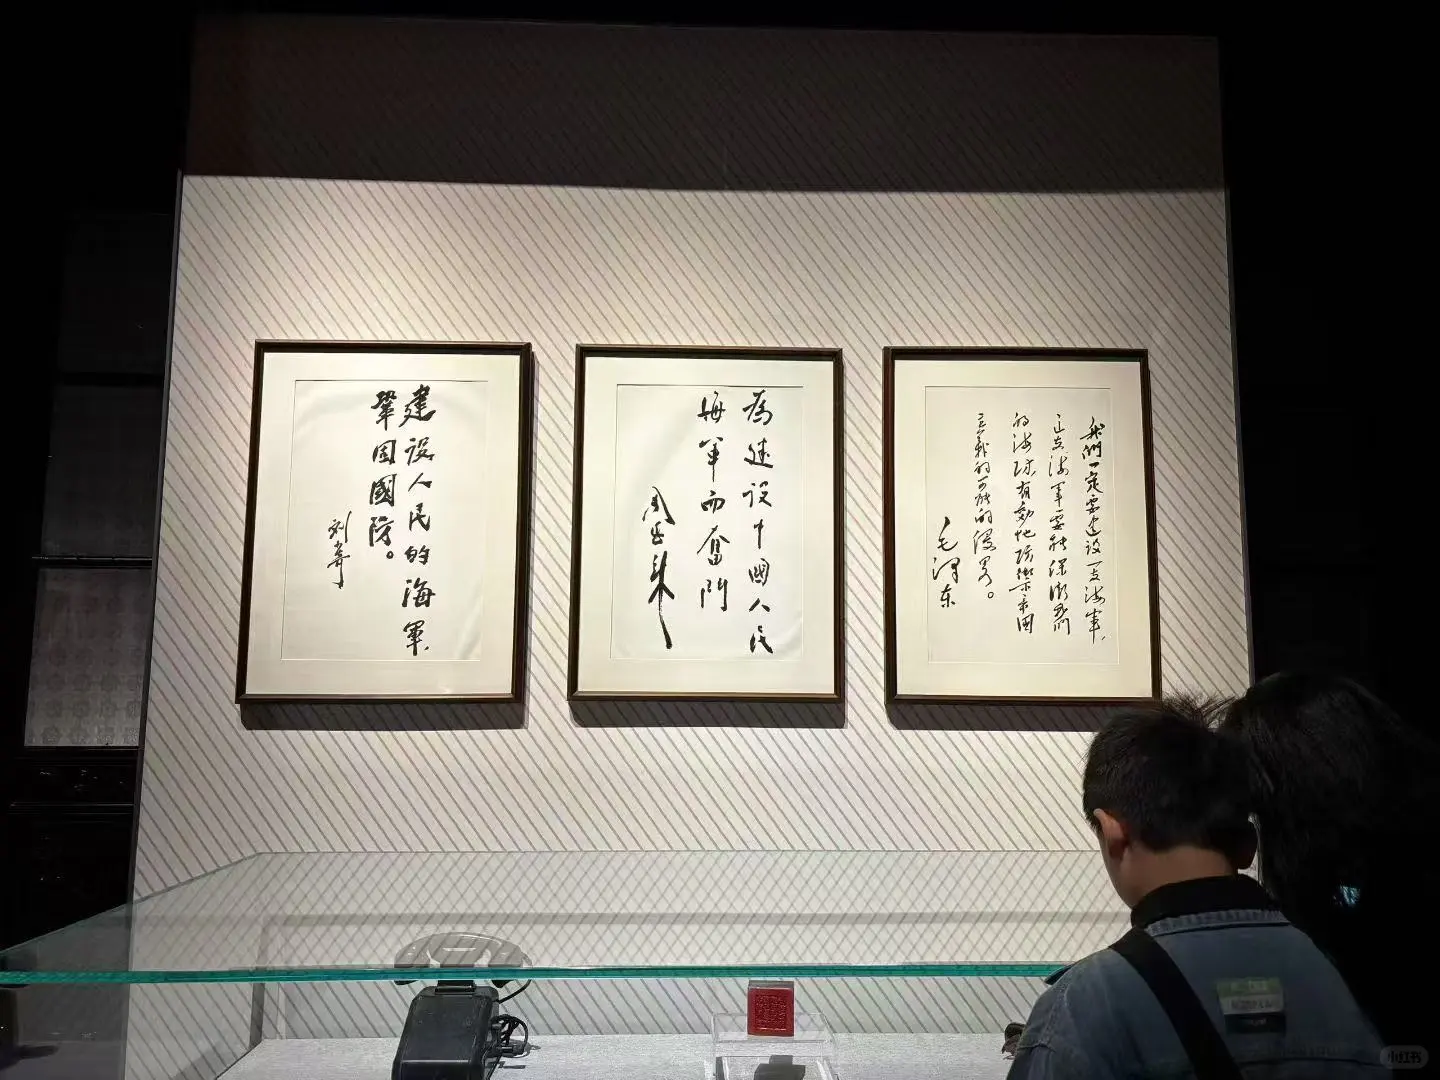 建设人民的海軍，
鞏固國防。
刘少奇
為建设中國人民
海军而奮鬥
周恩来
我們一定要建设一支海军，
这支海军要能保衛我們
的海防有効地防禦帝国
主義的可能的侵畧。
毛泽东
小红书